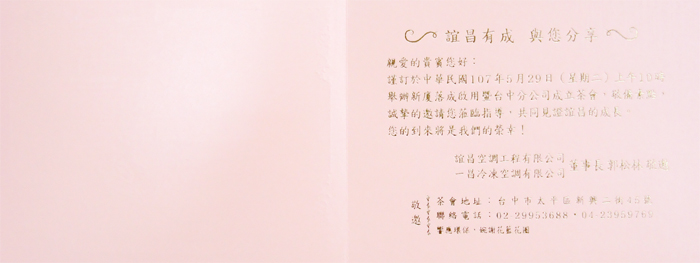 誼昌有成 與您分享
親愛的貴賓您好：
謹訂於中華民國107年5月29日(星期二)上午10
舉辦新廈落成啟用暨台中分公司成立茶會，敬備
誠摯的邀請您蒞臨指導，共同見證誼昌的成長。
您的到來將是我們的榮幸！
誼昌空調工程有限公司
一昌冷凍空調有限公司
董事長 郭松林 敬邀
敬邀
茶會地址：台中市太平區新興二街45號
聯絡電話：02-29953688‧04-23959769
響應環保，婉謝花籃花圈